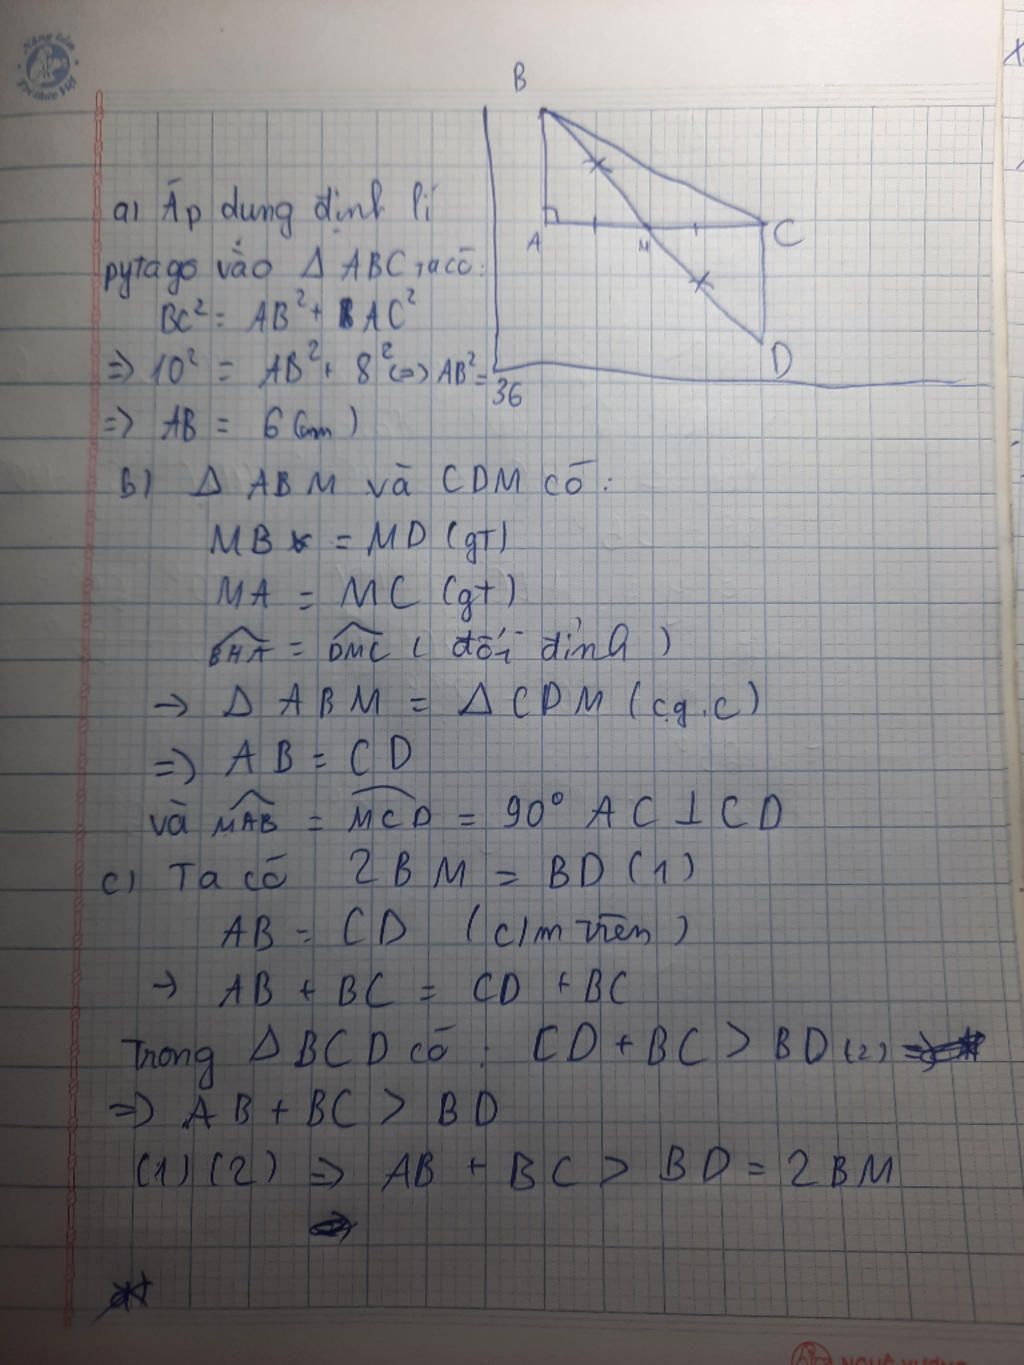 Nâng tầm
Tri thức Việt
B
A
M
C
D
a) Áp dung định lí
pytago vào Δ ABC ta có:
BC² = AB² + AC²
=> 10² = AB² + 8² <=> AB² = 36
=> AB = 6 (cm)
b) Δ ABM và CDM có:
MB = MD (gt)
MA = MC (gt)
BMA = DMC (đối đỉnh)
-> Δ ABM = Δ CDM (c.g.c)
=> AB = CD
và MAB = MCD = 90° AC ⊥ CD
c) Ta có 2BM = BD (1)
AB = CD (c/m trên)
-> AB + BC = CD + BC
Trong Δ BCD có: CD + BC > BD (2)
=> AB + BC > BD
(1) (2) => AB + BC > BD = 2BM